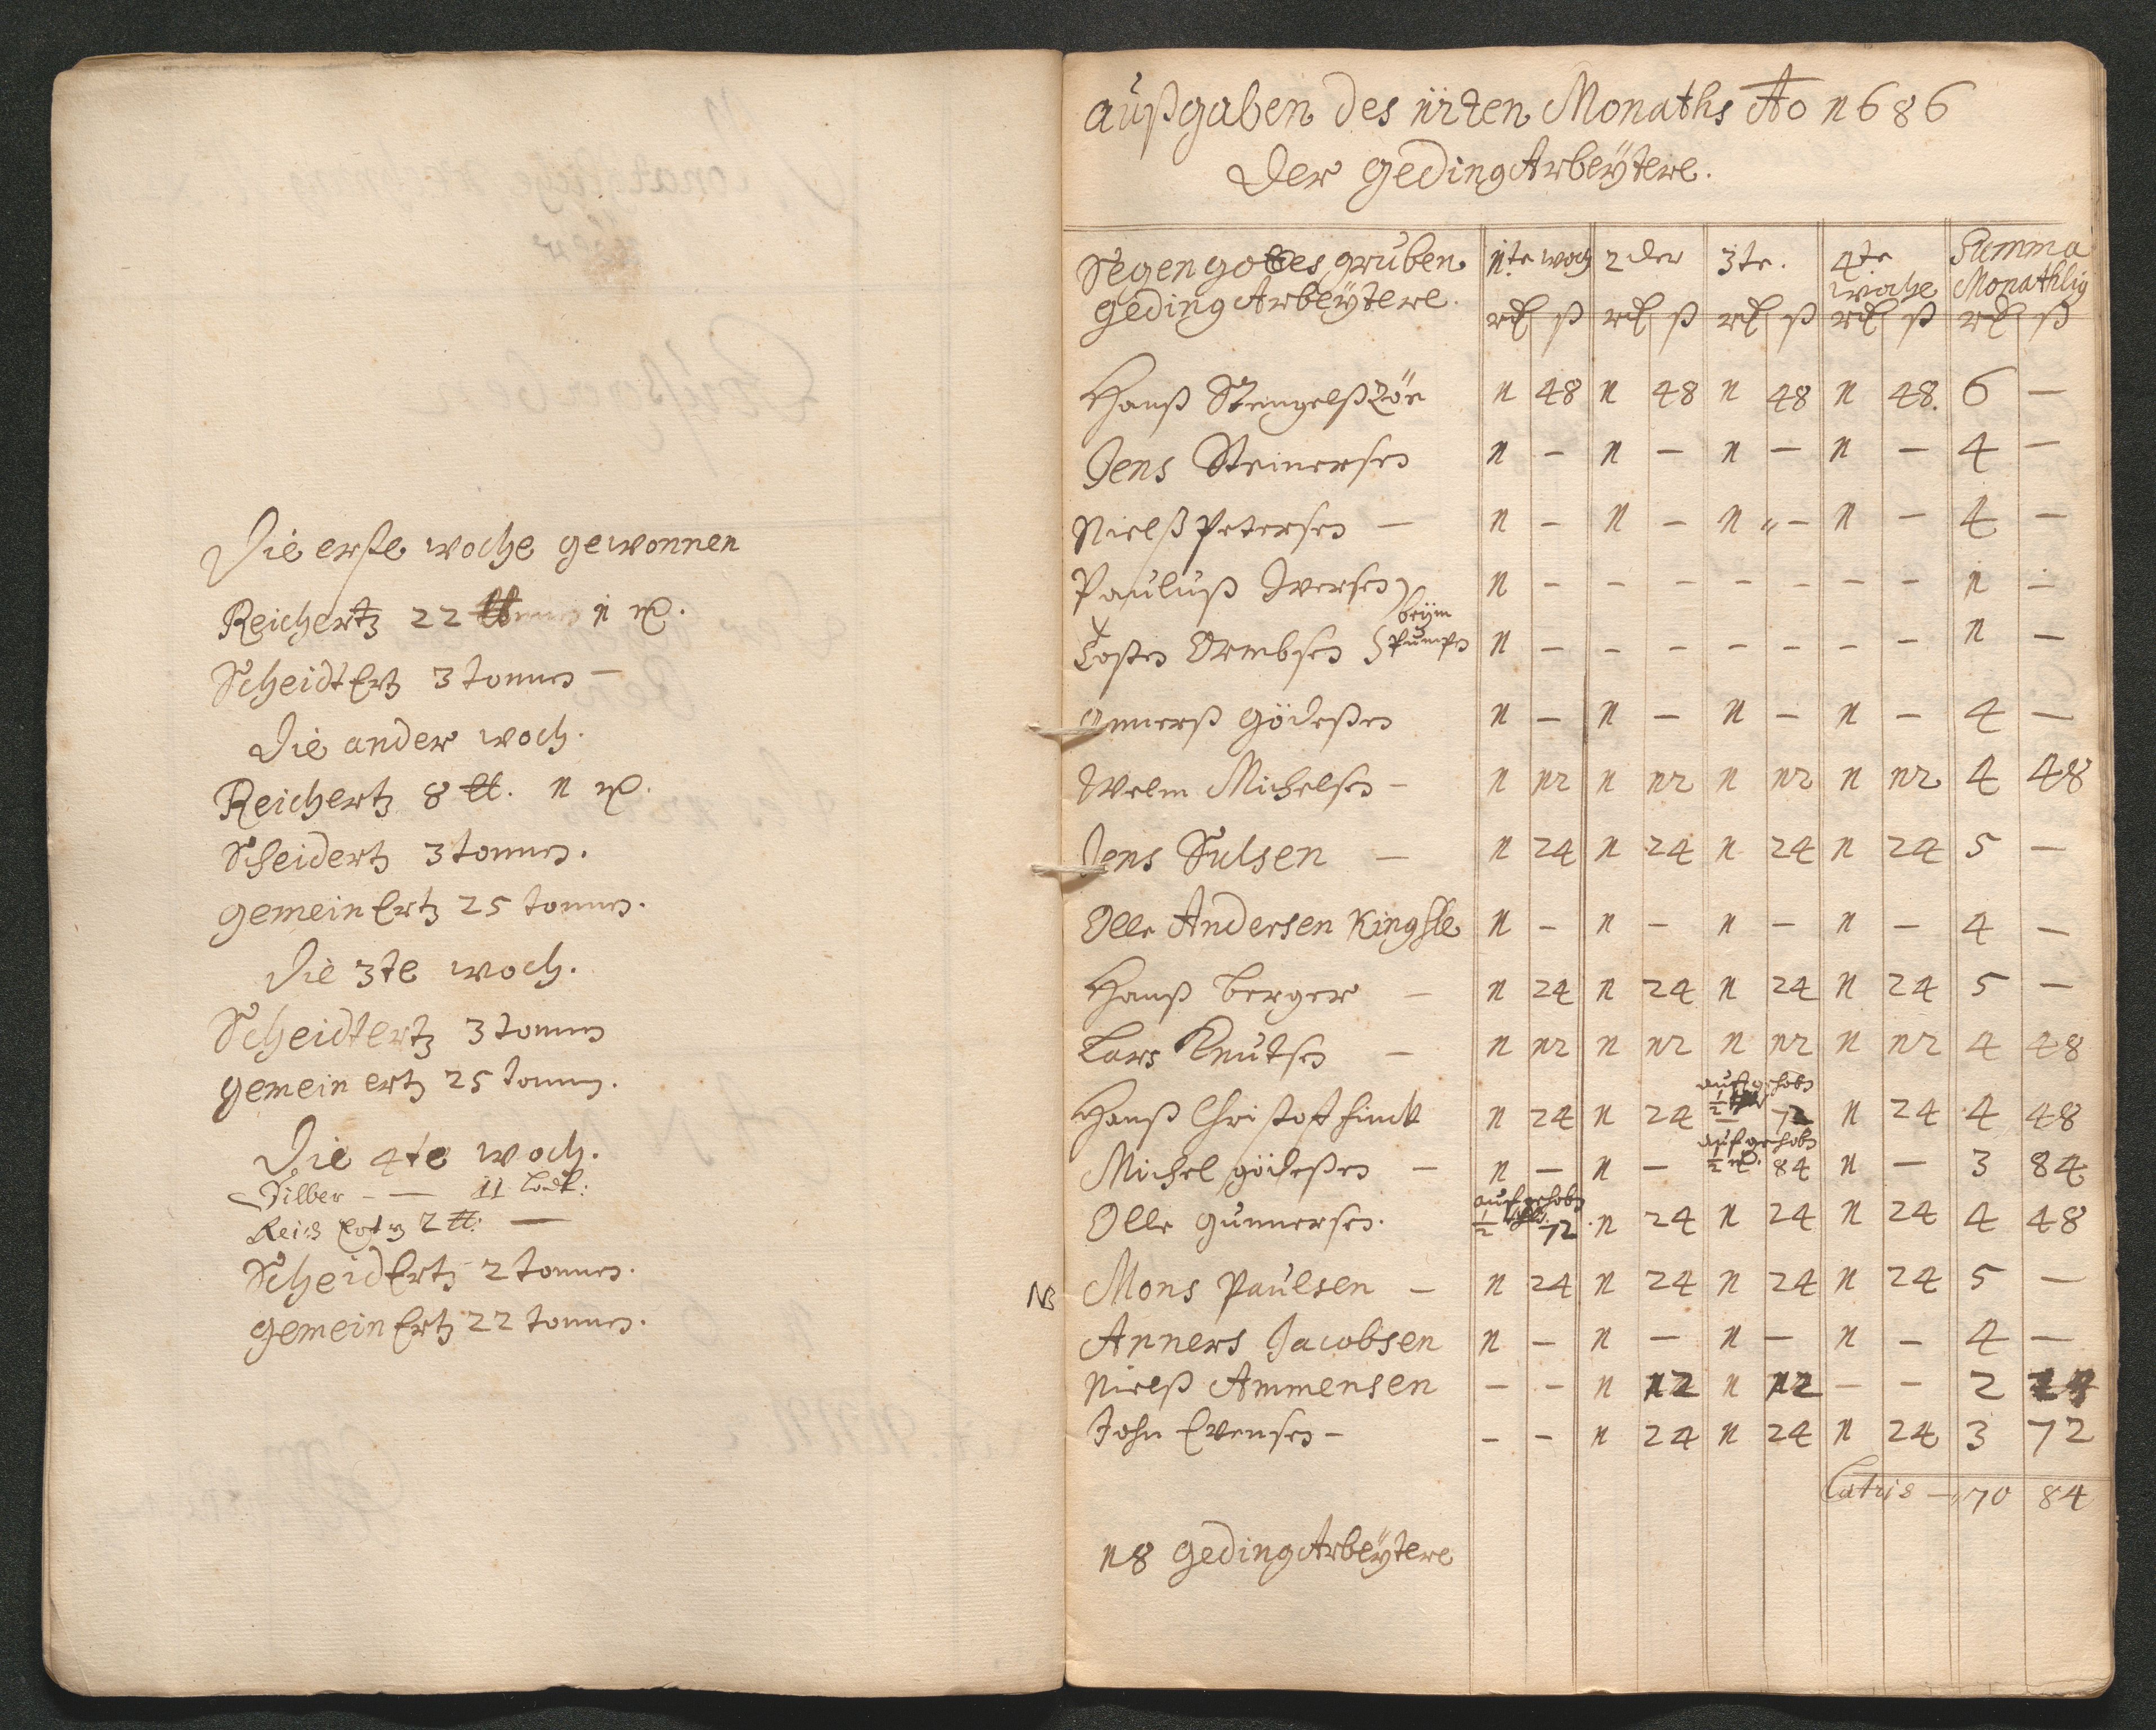 Die erste woche gewonnen
Reichertz 22 tt 1 m.
Scheidt Ertz 3 tonnen —
Die ander woch.
Reichertz 8 tt. 1 m.
Scheidertz 3 tonnen.
gemein Ertz 25 tonnen.
Die 3te woch.
Scheidtertz 3 tonnen
gemein ertz 25 tonnen.
Die 4te woch.
Silber - — 11 Lodt:
Reich Ertz 2 tt: —
Scheid Ertz 2 tonnen.
gemein Ertz 22 tonnen.
außgaben des 12ten Monaths Ao 1686
Der geding Arbeÿtere.
Segen gottes gruben 1te woch 2der 3te. 4te woche Summa Monathlig
geding Arbeÿtere. rd ß rd ß rd ß rd ß rd ß
Hanß 1 48 1 48 1 48 1 48. 6 —
Jens Steinersen 1 — 1 — 1 — 1 — 4 —
Nielß Petersen — 1 — 1 — 1 — 1 — 4 —
Pauluß Iversen 1 - - - - - - - 1 -
beÿm
Tosten Ormbsen Pumpen 1 - - - - - - - 1 —
Annerß Gödeßen 1 — 1 — 1 — 1 — 4 —
Welm Michelsen - 1 12 1 12 1 12 1 12 4 48
Jens Sulsen — 1 24 1 24 1 24 1 24 5 —
Olle Andersen Kingsle 1 — 1 — 1 — 1 — 4 —
Hanß berger — 1 24 1 24 1 24 1 24 5 —
Lars Knutsen — 1 12 1 12 1 12 1 12 4 48
auffgehobn
Hanß Christoff finck 1 24 1 24 ½ — 72 1 24 4 48
auffgehobn
Michel gödeßen — 1 — 1 — ½ 84 1 — 3 84
auffgehobn
Olle gunnersen. ½ 72. 1 24 1 24 1 24 4 48
NB Mons Paulsen — 1 24 1 24 1 24 1 24 5 —
Anners Jacobsen 1 — 1 — 1 — 1 — 4 —
Nielß Ammensen - - 1 12 1 12 - - 2 24
John Evensen - - - 1 24 1 24 1 24 3 72
Latus — 70 84
18 geding Arbeÿtere